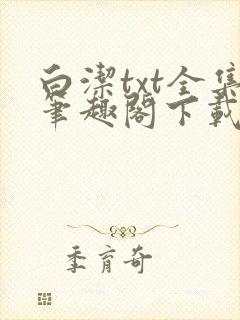 白潔txt全集
筆趣閣下載
季育奇